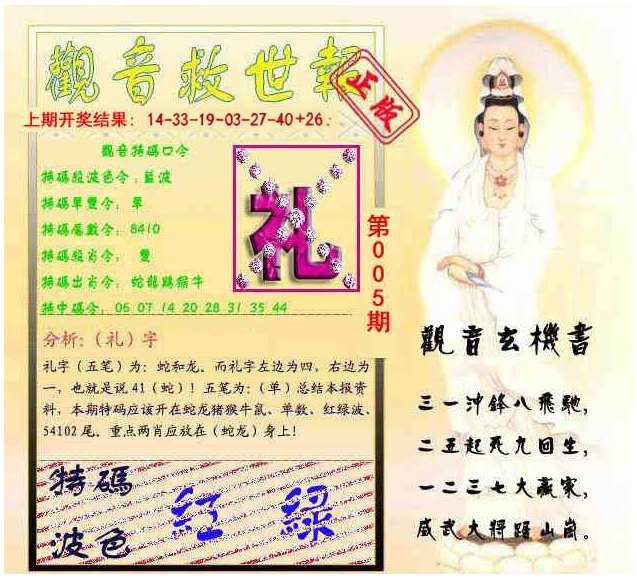 觀音救世報
正版
上期开奖结果：14-33-19-03-27-40+26
觀音特碼口令
特碼段波色令：藍波
特碼單雙令：單
特碼尾數令：8410
特碼段肖令：雙
特碼出肖令：蛇龍鷄猴牛
特中碼令：06 07 14 20 28 31 35 44
礼
第005期
分析:（礼）字
礼字（五笔）为：蛇和龙。而礼字左边为四，右边为
一，也就是说41（蛇）！五笔为：（单）总结本报资
料，本期特码应该开在蛇龙猪猴牛鼠、单数、红绿波、
54102尾。重点两肖应放在（蛇龙）身上！
特碼
波色
紅 綠
觀音玄機書
三一沖鋒八飛馳，
二五起死九回生，
一二三七大贏家，
威武大將踞山崗。